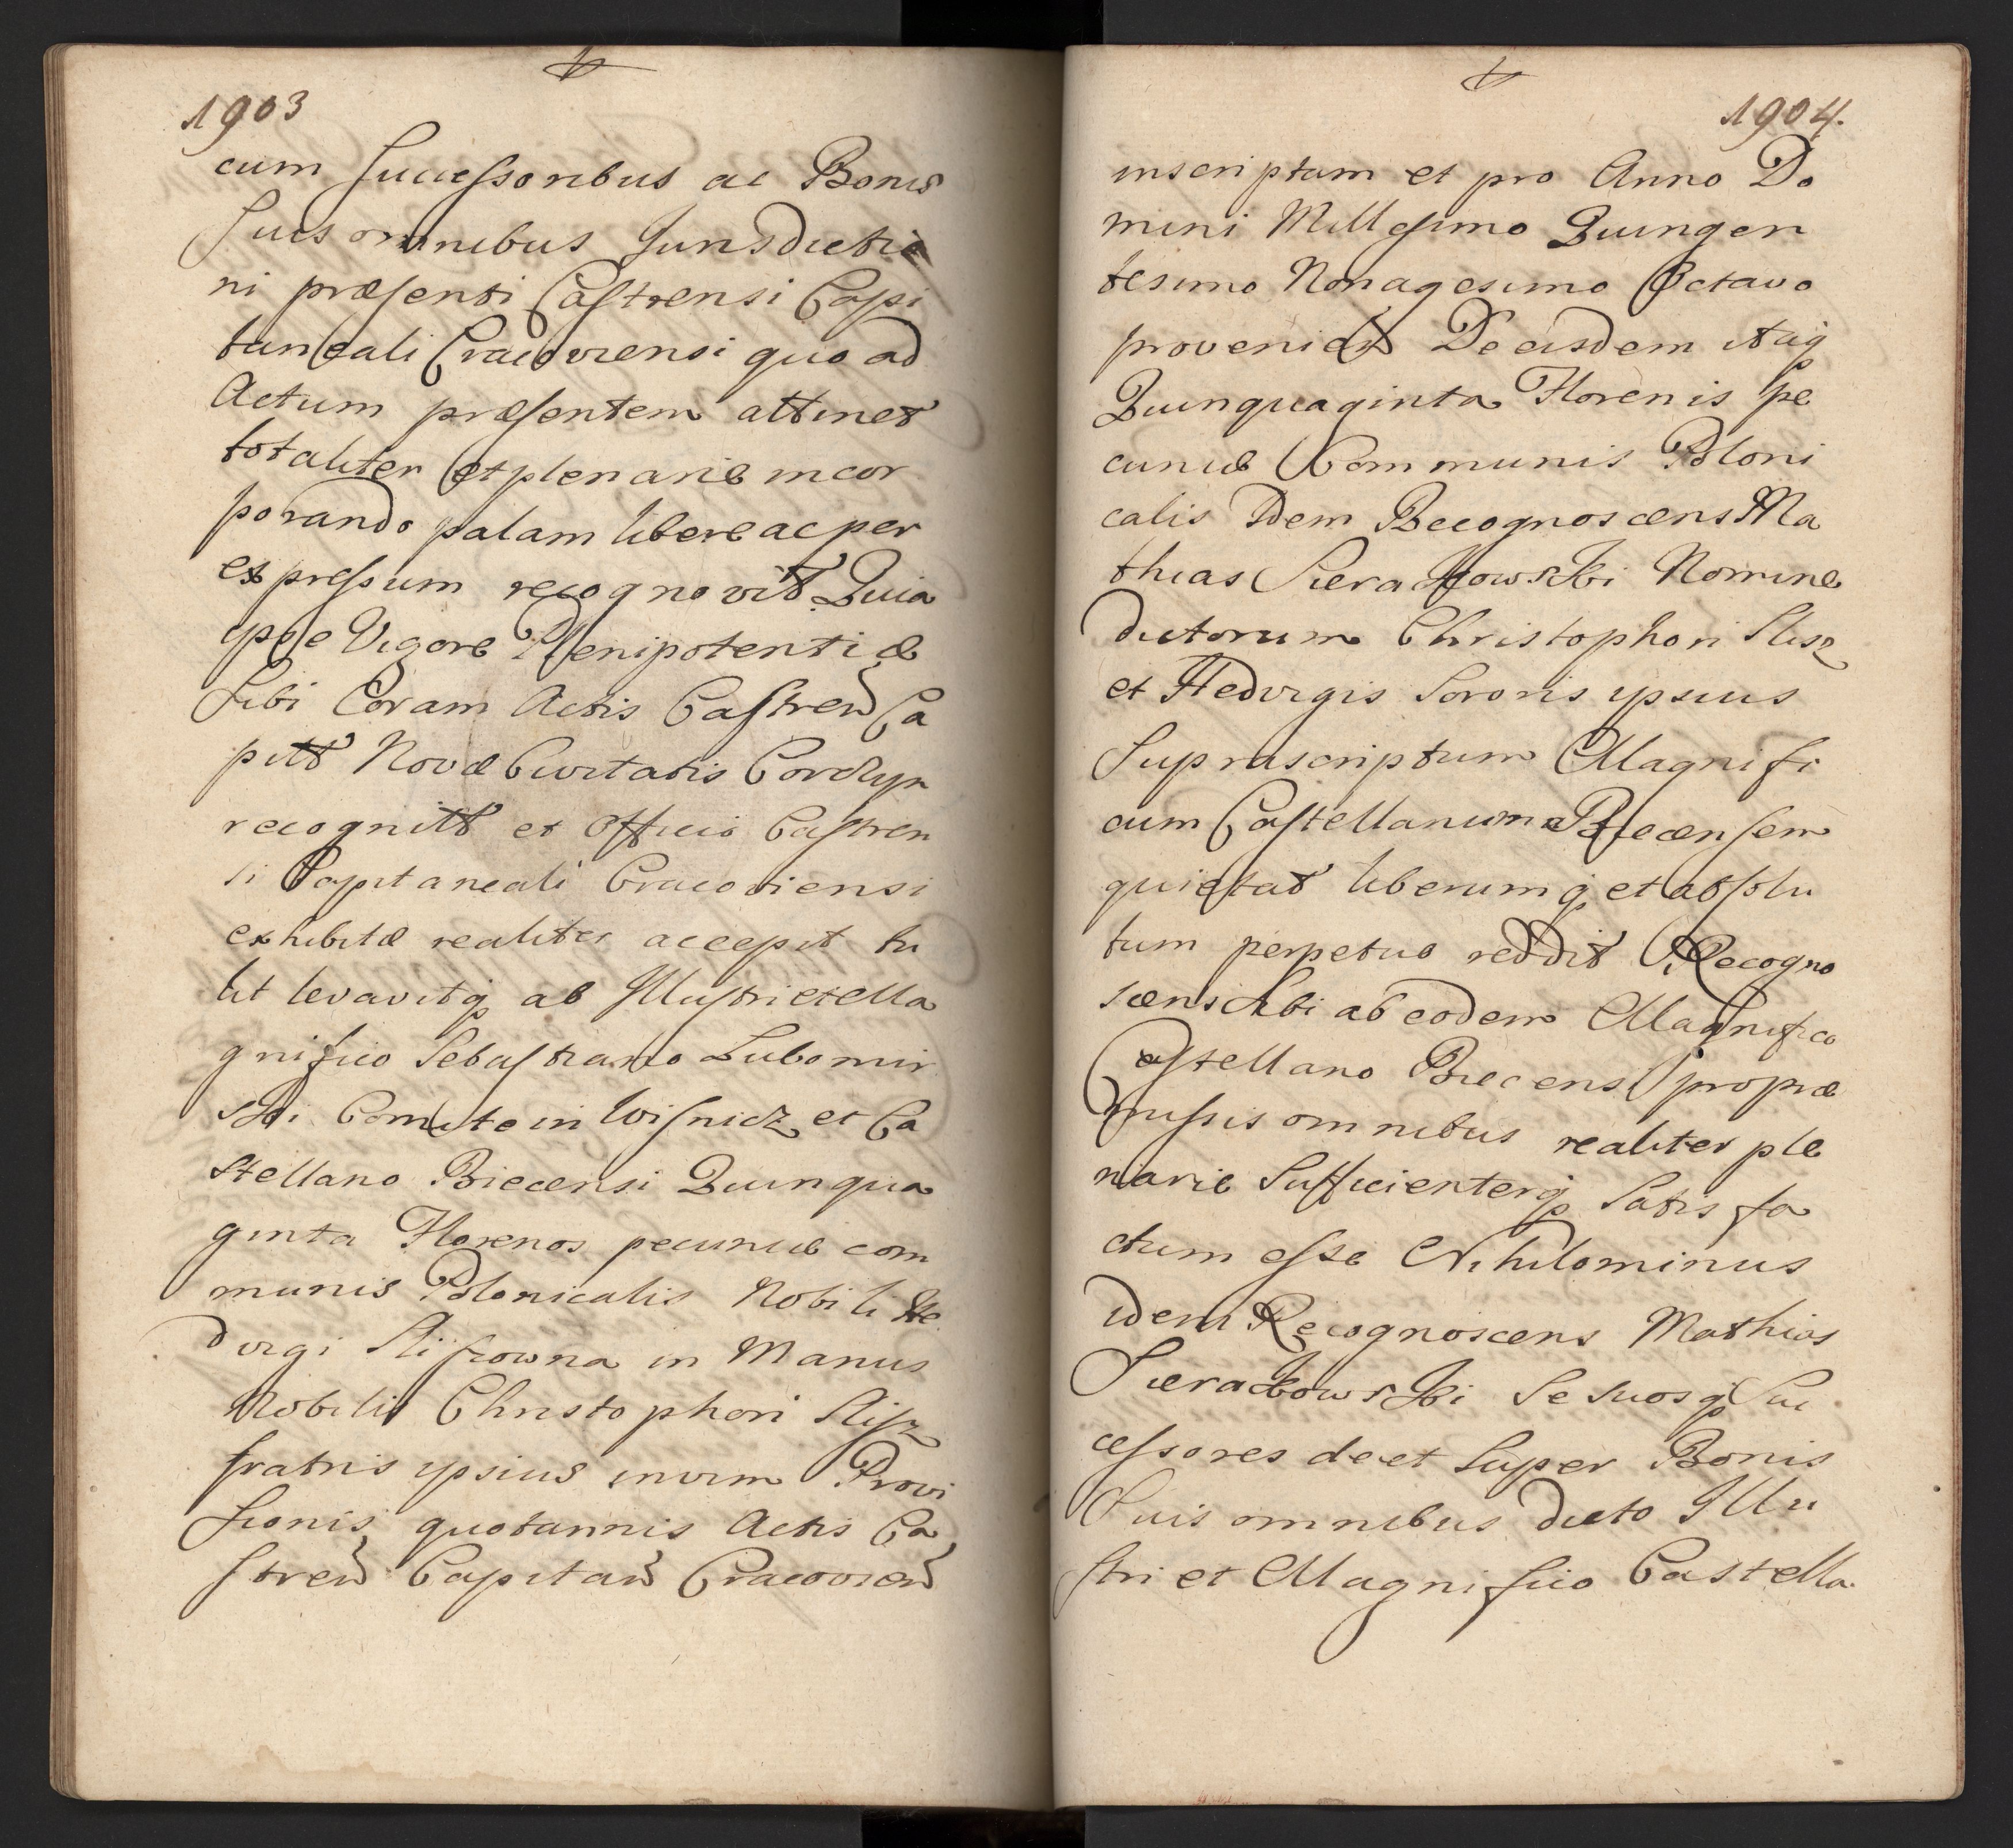 1903
cum Successoribus ac Bonis
Suis omnibus Jurisdictio
ni præsenti Castrensi Capi
taneali Cracoviensi quo ad
Actum præsentem attinet
totaliter et plenarie incor
porando palam libere ac per
expressum recognovit Quia
ipse Vigore Plenipotentiæ
Sibi Coram Actis Castren Ca
pitt Novæ Civitatis Corczyn
recognitt et Officio Castren
si Capitaneali Cracoviensi
exhibitæ realiter accepit tu
lit levavitq ab Illustri et Ma
gnifico Sebastiano Lubomir
ski Comite in Wisnicz et Ca
stellano Biecensi Quinqua
ginta Florenos pecuniæ com
munis Polonicalis Nobili He
dvigi Sliszowna in Manus
Nobilis Christophori Slisz
fratris ipsius in vim Provi
sionis quotannis Actis Ca
stren Capitan Cracovien
1904.
inscriptam et pro Anno Do
mini Millesimo Quingen
tesimo Nonagesimo Octavo
provenien De eisdem itaq
Quinquaginta Florenis pe
cuniæ Communis Poloni
calis Idem Recognoscens Ma
thias Sierakowski Nomine
dictorum Christophori Slisz
et Hedvigis Sororis ipsius
Suprascriptum Magnifi
cum Castellanum Biecensem
quietat liberumq et absolu
tum perpetuo reddit Recogno
scens Sibi ab eodem Magnifico
Castellano Biecens pro præ
missis omnibus realiter ple
narie Sufficienterq Satis fa
ctum esse Nihilominus
idem Recognoscens Mathias
Sierakowski Se Suosq Suc
cessores de et Super Bonis
Suis omnibus dicto Illu
stri et Magnifico Castella